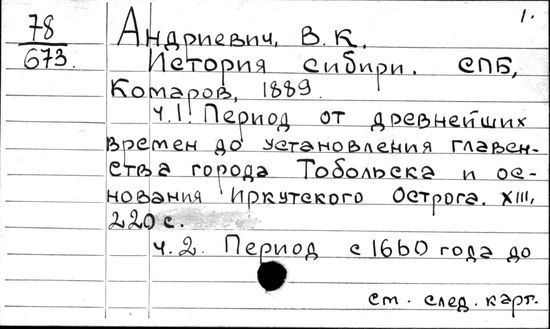 1.
78
673.
Андриевич, В. К.
История сибири. СПБ,
Комаров, 1889.
ч.1. Период от древнейших
времен до установления главен-
ства города Тобольска и ос-
нования Иркутского Острога. XIII,
220 с.
ч. 2. Период с 1660 года до
см. след. карт.